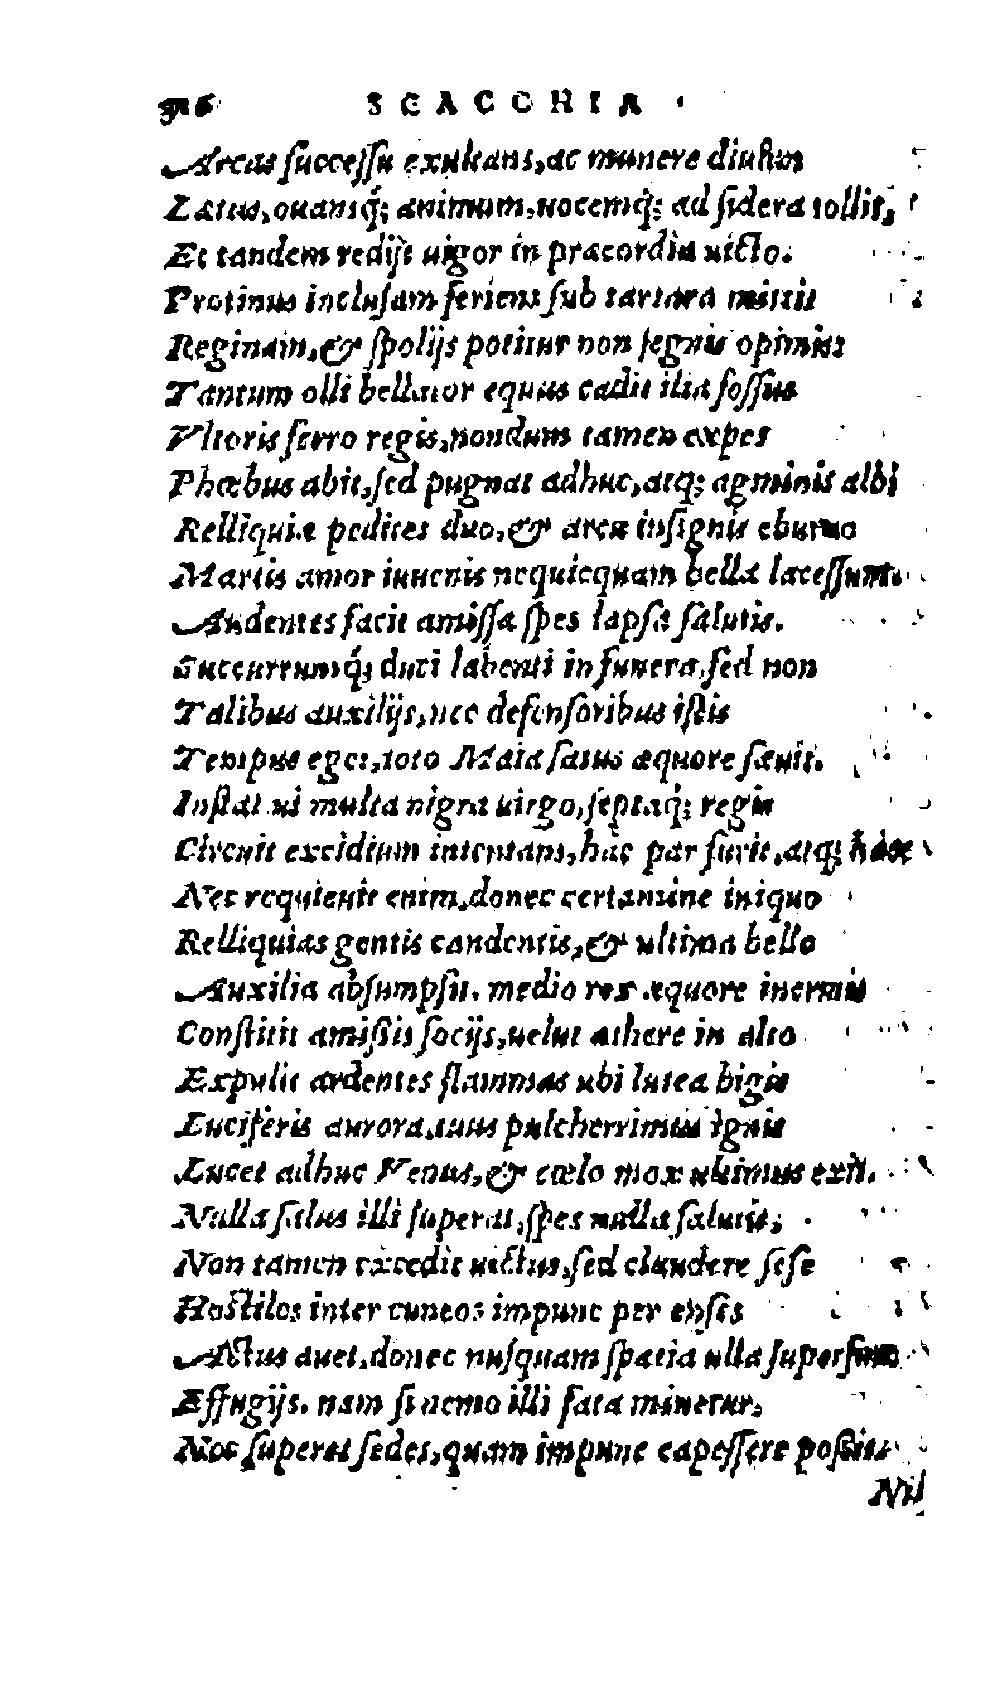 SCACCHIA
Arcas successu exultans, ac munere diuum
Lætus, ouansq́; animum, uocemq́; ad sidera tollit,
Et tandem redijt uigor in præcordia uicto.
Protinus inclusam feriens sub tartara mittit
Reginam, & spolijs potitur non segnis opimis:
Tantum olli bellator equus cadit ilia fossus
Vltoris ferro regis, nondum tamen expes
Phœbus abit, sed pugnat adhuc, atq; agminis albi
Relliquiæ pedites duo, & arcu insignis eburno
Martis amor iuuenis nequicquam bella lacessunt.
Audentes facit amissa spes lapsa salutis.
Succurruntq́; duci labenti in funera, sed non
Talibus auxilijs, nec defensoribus istis
Tempus eget, toto Maia satus æquore sæuit.
Instat ui multa nigra uirgo, septaq́; regis
Circuit excidium intentans, hàc par furit, atq; hàc
Nec requieuit enim, donec certamine iniquo
Relliquias gentis candentis, & ultima bello
Auxilia absumpsit. medio rex æquore inermis
Constitit amissis socijs, uelut æthere in alto
Expulit ardentes flammas ubi lutea bigis
Luciferis aurora, tuus pulcherrimus ignis
Lucet adhuc Venus, & cœlo mox ultimus exit.
Nulla salus illi superat, spes nulla salutis,
Non tamen excedit uictus, sed claudere sese
Hostiles inter cuneos impune per enses
Actus auet, donec nusquam spatia ulla supersint
Effugijs. nam si nemo illi fata minetur,
Nec superet sedes, quam impune capessere possit:
Nil